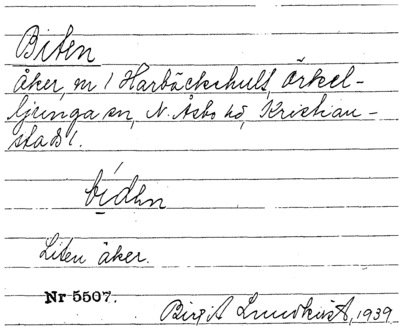 Biten
åker, m 1 Harbäckshult, Örkel-
ljunga sn, N. Åsbo hd, Kristian-
stads l.
bíden
Liten åker.
Nr 5507.
Birgit Lundkvist, 1939